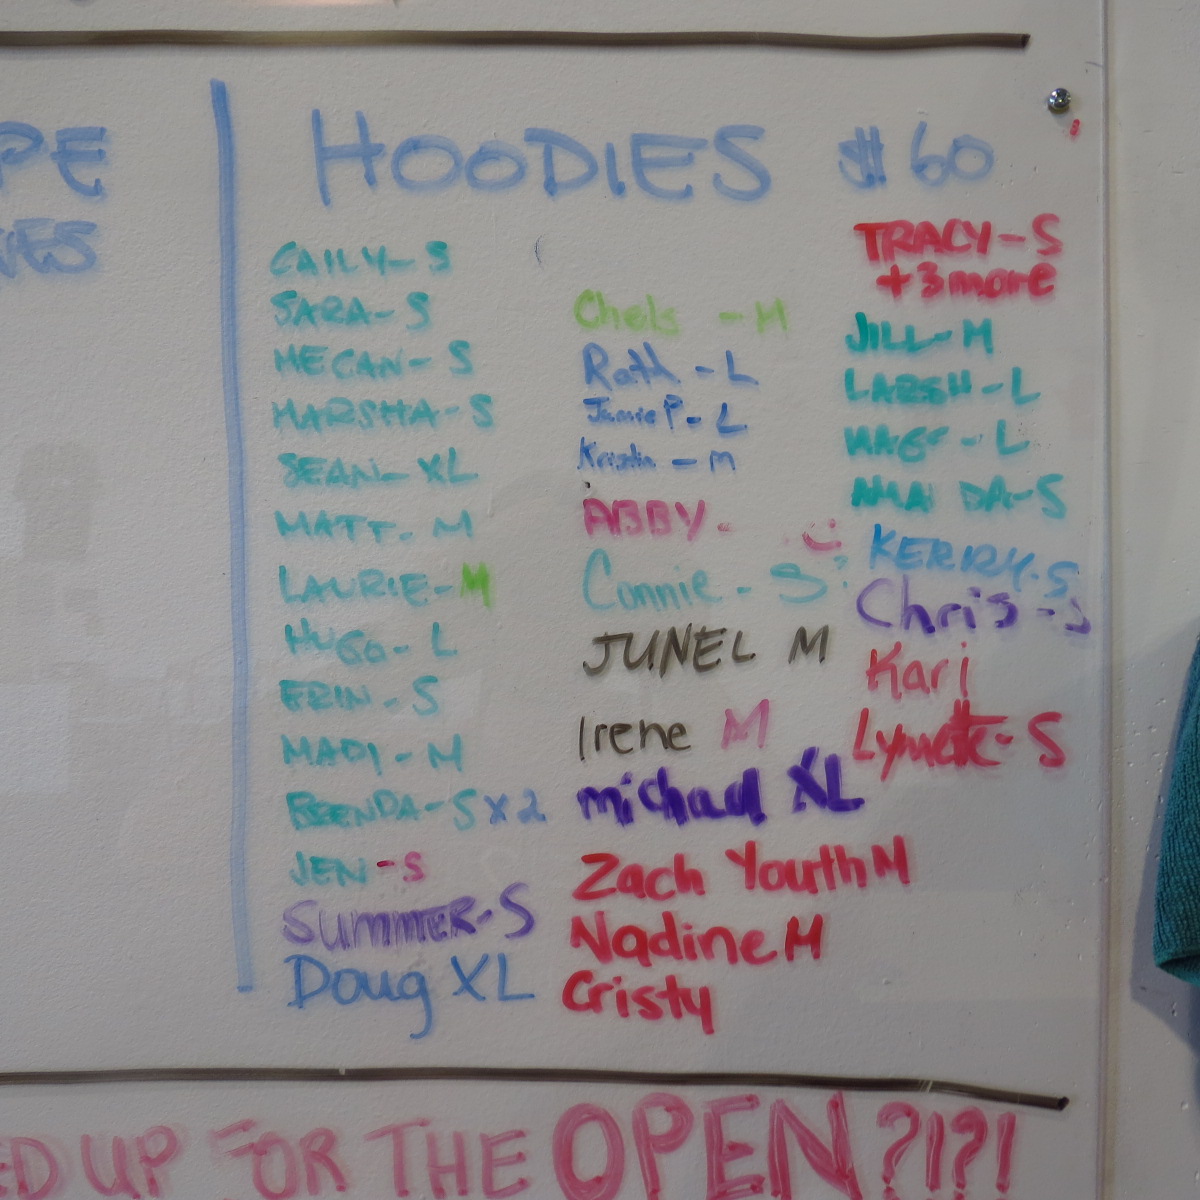 PE
VES
HOODIES $60
CAILY- S
SARA- S
MEGAN- S
MARSHA- S
SEAN- XL
MATT- M
LAURIE- M
HUGO- L
ERIN- S
MADI- M
BRENDA- S x 2
JEN - S
SUMMER- S
Doug XL
Chels - M
Rath - L
Jamie P- L
Kristin - M
ABBY-
Connie - S?
JUNEL M
Irene M
michael XL
Zach Youth M
Nadine M
Cristy
TRACY - S
+3 more
JILL- M
- L
- L
- S
KERRY- S
Chris - S
Kari
Lynette- S
ED UP FOR THE OPEN?!?!